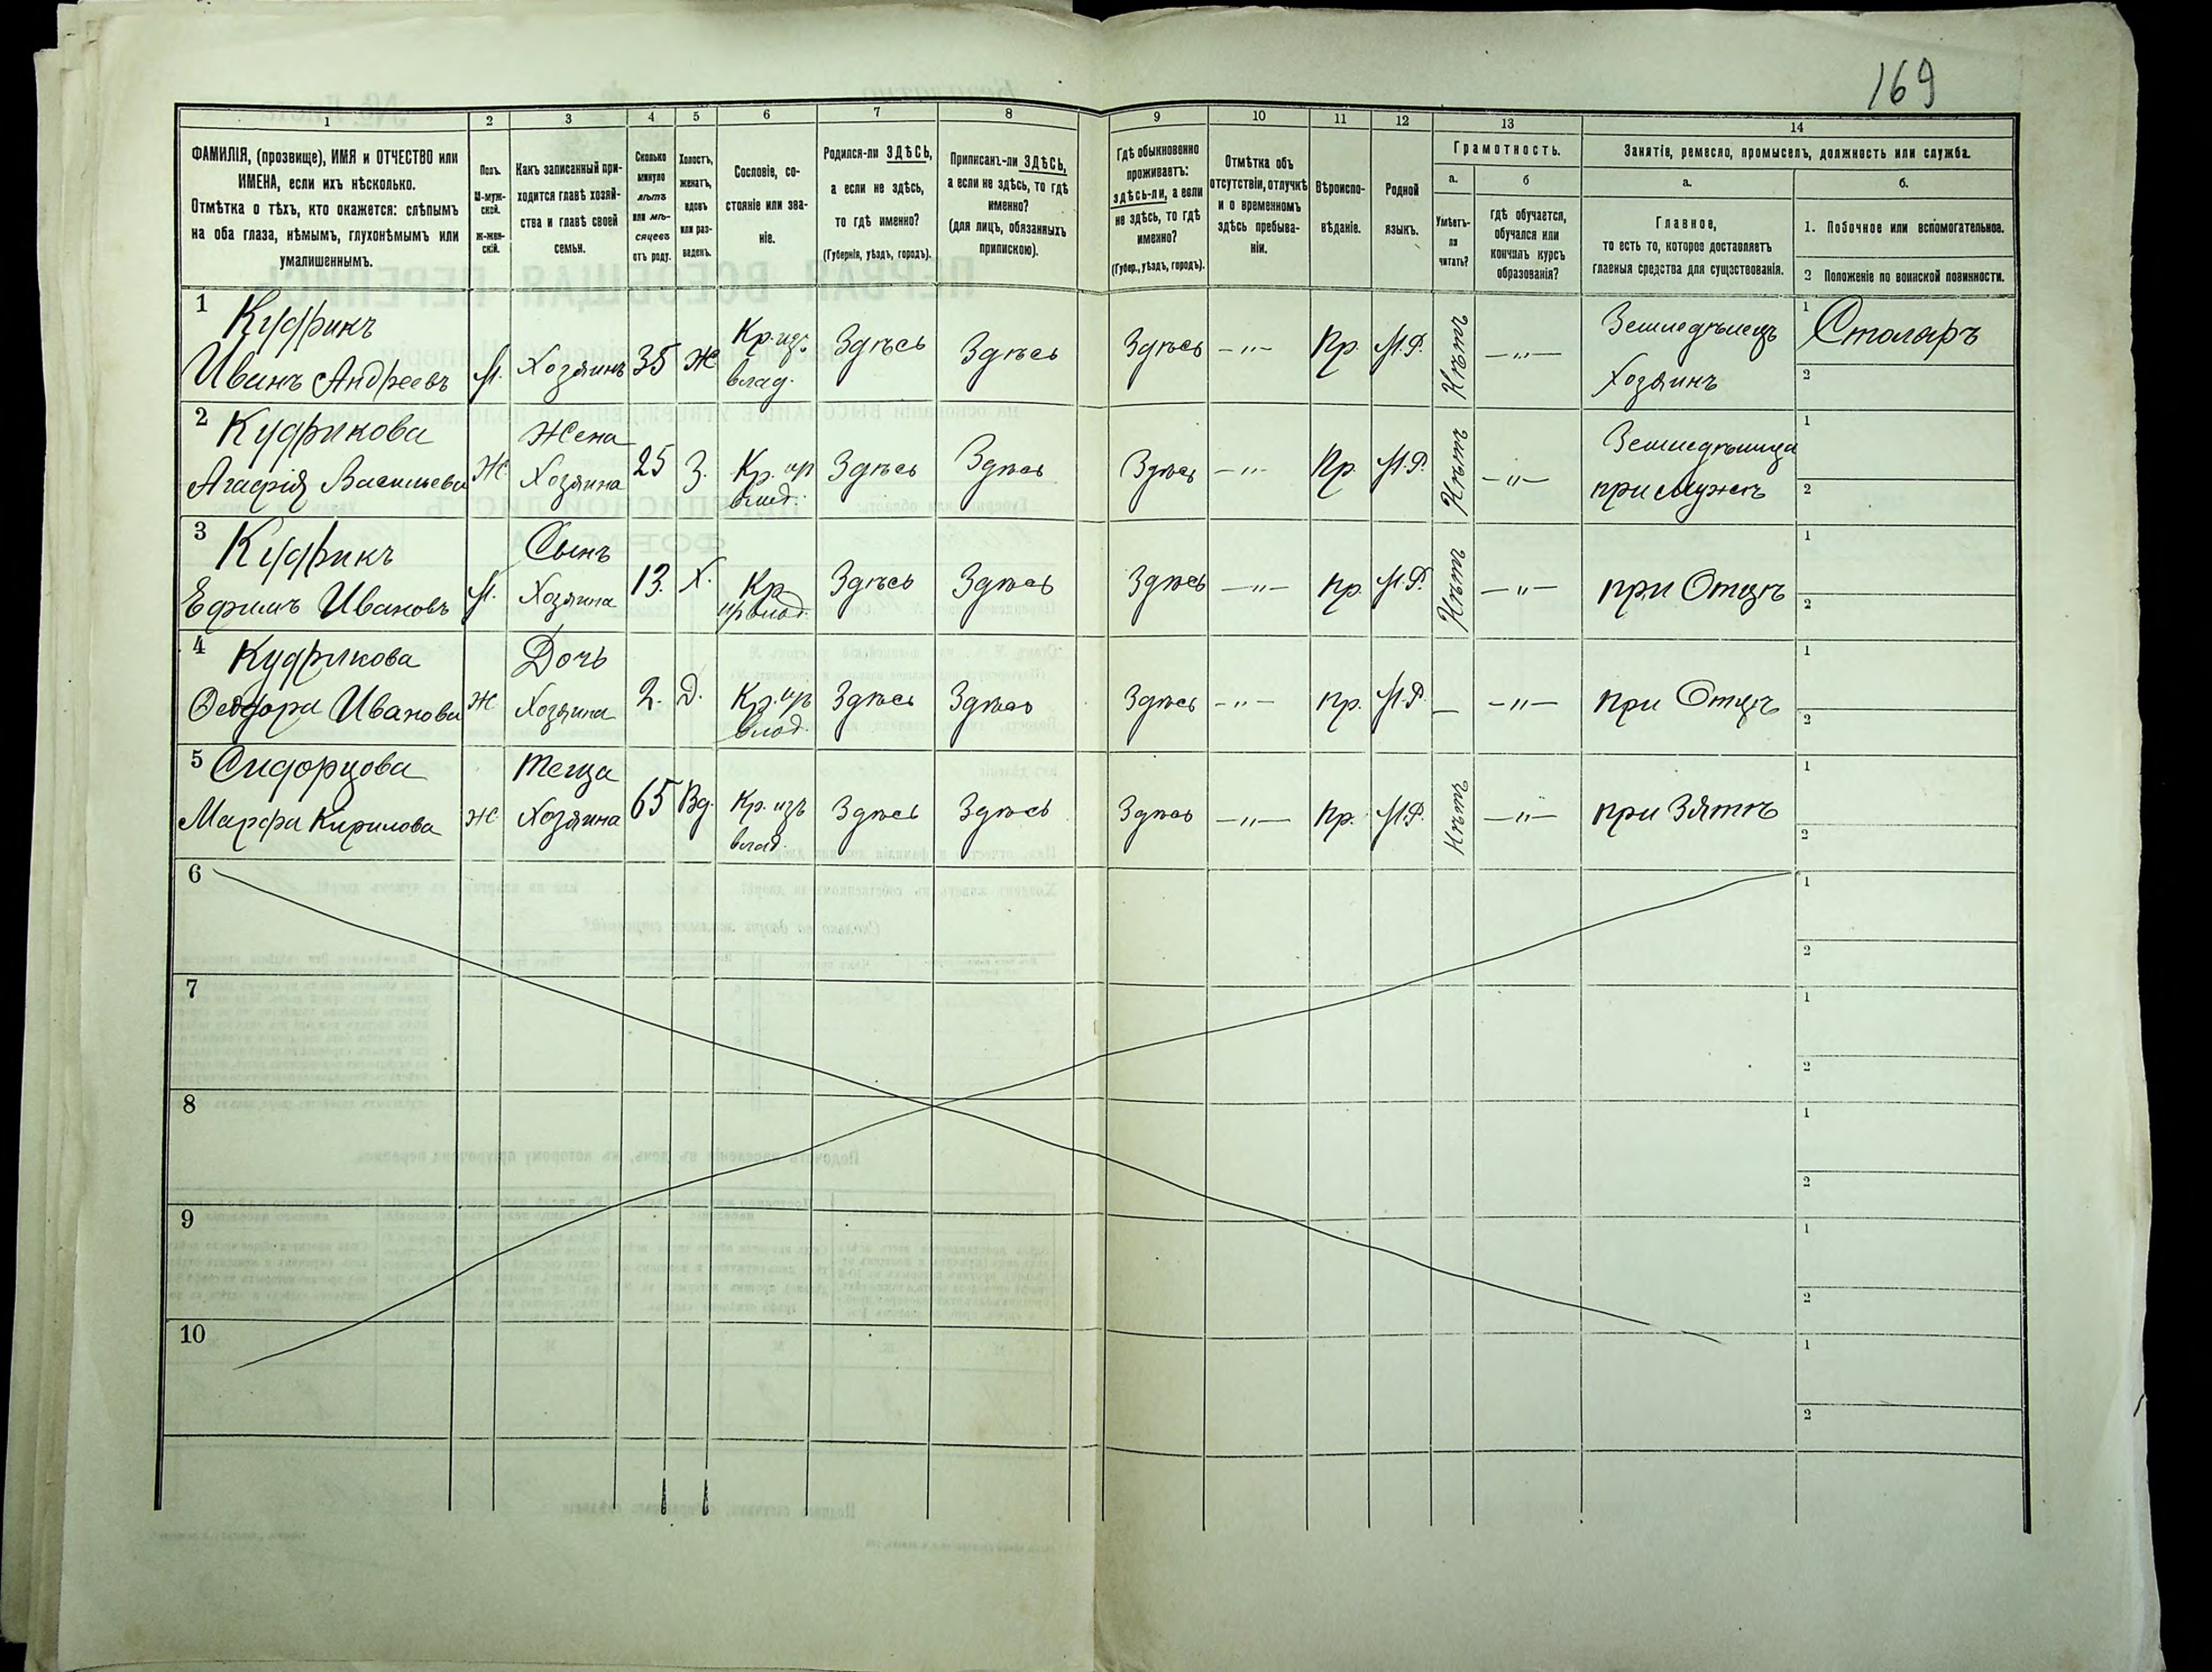 169
1 2 3 4 5 6 7 8 9 10 11 12 13 14
ФАМИЛІЯ, (прозвище), ИМЯ и ОТЧЕСТВО или
ИМЕНА, если ихъ нѣсколько.
Отмѣтка о тѣхъ, кто окажется: слѣпымъ
на оба глаза, нѣмымъ, глухонѣмымъ или
умалишеннымъ.
Полъ.
М-муж-
ской.
Ж-жен-
скій.
Какъ записанный при-
ходится главѣ хозяй-
ства и главѣ своей
семьи.
Сколько
минуло
лѣтъ
или мѣ-
сяцевъ
отъ роду.
Холостъ,
женатъ,
вдовъ
или раз-
веденъ.
Сословіе, со-
стояніе или зва-
ніе.
Родился-ли ЗДѢСЬ,
а если не здѣсь,
то гдѣ именно?
(Губернія, уѣздъ, городъ).
Приписанъ-ли ЗДѢСЬ,
а если не здѣсь, то гдѣ
именно?
(для лицъ, обязанныхъ
припискою).
Гдѣ обыкновенно
проживаетъ:
здѣсь-ли, а если
не здѣсь, то гдѣ
именно?
(Губер., уѣздъ, городъ).
Отмѣтка объ
отсутствіи, отлучкѣ
и о временномъ
здѣсь пребыва-
ніи.
Вѣроиспо-
вѣданіе.
Родной
языкъ.
Грамотность.
а.
Умѣетъ-
ли
читать?
б
гдѣ обучается,
обучался или
кончилъ курсъ
образованія?
Занятіе, ремесло, промыселъ, должность или служба.
а.
Главное,
то есть то, которое доставляетъ
главныя средства для существованія.
б.
1. Побочное или вспомогательное.
2 Положеніе по воинской повинности.
1 Кудрикъ Кр. из Земледѣлецъ 1 Столяръ
Иванъ Андреевъ М. Хозяинъ 35 Ж влад. Здѣсь Здѣсь Здѣсь —"— Пр. М.Р. Нѣтъ —"— Хозяинъ 2
2 Кудрикова Жена Земледѣлица 1
Агафія Васильева Ж Хозяина 25 З. Кр. из влад. Здѣсь Здѣсь Здѣсь —"— Пр. М.Р. Нѣтъ —"— при Мужѣ 2
3 Кудрикъ Сынъ 1
Ефимъ Ивановъ М. Хозяина 13. Х. Кр. из влад. Здѣсь Здѣсь Здѣсь —"— Пр. М.Р. Нѣтъ —"— при Отцѣ 2
4 Кудрикова Дочь 1
Ѳеодора Иванова Ж Хозяина 2. Д. Кр. из влад. Здѣсь Здѣсь Здѣсь —"— Пр. М.Р. — —"— при Отцѣ 2
5 Сидорцова Теща 1
Марфа Кирилова Ж Хозяина 65 Вд. Кр. изъ влад. Здѣсь Здѣсь Здѣсь —"— Пр. М.Р. Нѣтъ —"— при Зятѣ 2
6 1
2
7 1
2
8 1
2
9 1
2
10 1
2